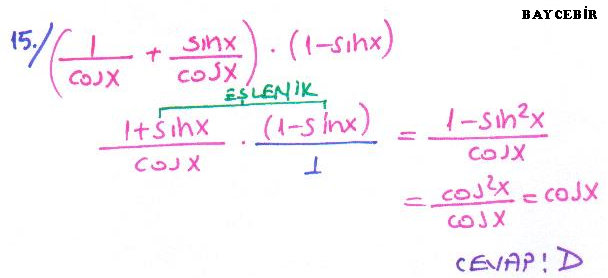 BAYCEBİR
15./ (1/cosx + sinx/cosx) . (1-sinx)
EŞLENİK
(1+sinx)/cosx . (1-sinx)/1 = (1-sin²x)/cosx
= cos²x/cosx = cosx
CEVAP: D